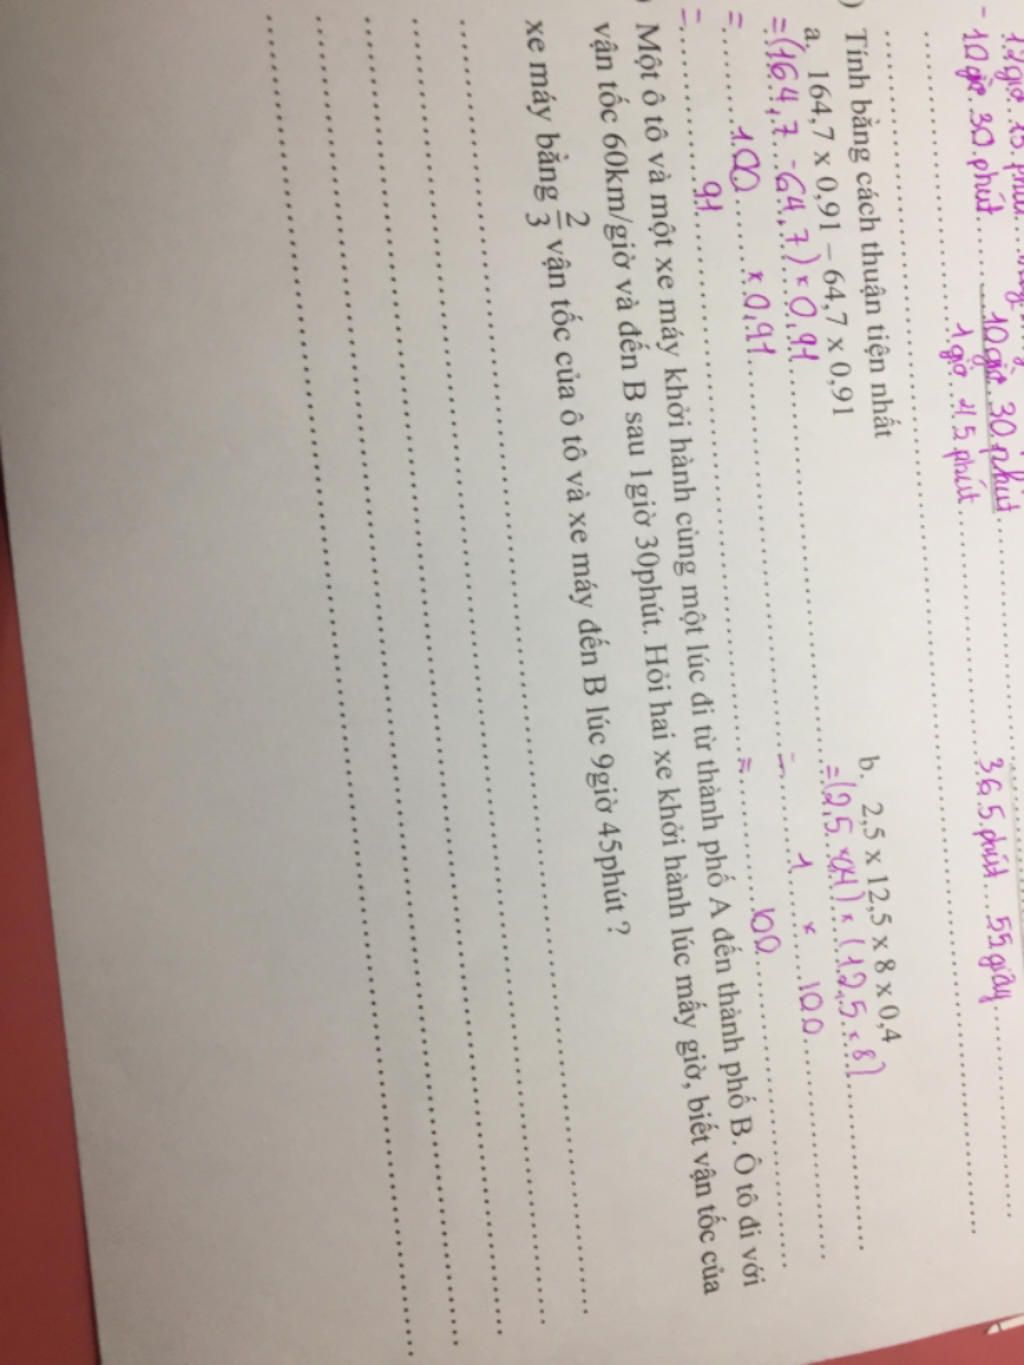 12 giờ 15 phút
- 10 giờ 30 phút 10 giờ 30 phút 36,5 phút 55 giây
1 giờ 45 phút
) Tính bằng cách thuận tiện nhất
a. 164,7 x 0,91 – 64,7 x 0,91 b. 2,5 x 12,5 x 8 x 0,4
= (164,7 - 64,7) x 0,91 = (2,5 x 0,4) x (12,5 x 8)
= 100 x 0,91 = 1 x 100
= 91 = 100
) Một ô tô và một xe máy khởi hành cùng một lúc đi từ thành phố A đến thành phố B. Ô tô đi với
vận tốc 60km/giờ và đến B sau 1giờ 30phút. Hỏi hai xe khởi hành lúc mấy giờ, biết vận tốc của
xe máy bằng 2/3 vận tốc của ô tô và xe máy đến B lúc 9giờ 45phút ?